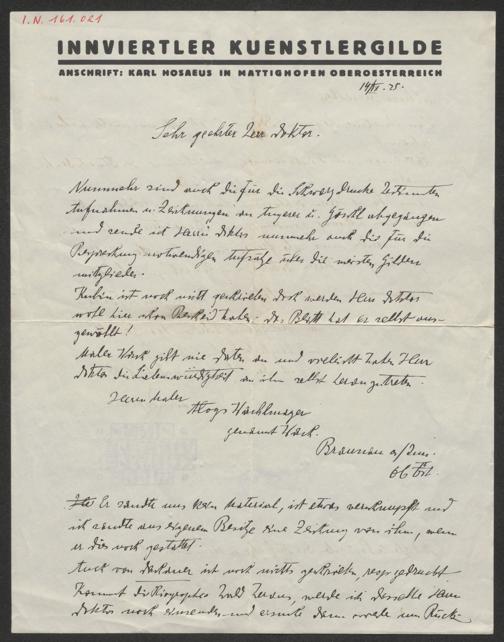 I.N. 161.021
INNVIERTLER KUENSTLERGILDE
ANSCHRIFT: KARL HOSAEUS IN MATTIGHOFEN OBEROESTERREICH
Sehr geehrter Herr Doktor.
Nunmehr sind auch die für die Schwarzdrucke bestimmten
Aufnahmen u. Zeichnungen an Angerer u. Göschl abgegangen
und sende ich Herrn Doktor nunmehr auch die für die
Besprechung notwendigen Aufsätze über die meisten Gilden
mitglieder.
Kubin ist noch nicht geschrieben doch werden Herr Doktor
wohl hier schon Bescheid haben; das Blatt hat er selbst aus-
gewählt!
Maler Wach gibt nie Daten an und vielleicht haben Herr
Doktor die Liebenswürdigkeit an ihn selbst heranzutreten.
Herrn Maler
Aloys Wachlmayer
genannt Wach.
Braunau a/Inn.
Er sandte uns kein Material, ist etwas verschnupft und
ich sandte aus eigenem Besitze eine Zeichnung von ihm, wenn
er dies noch gestattet.
Auch von ist noch nichts geschrieben, resp. gedruckt
Kommt die Biographie bald heraus, werde ich dieselbe Herrn
Doktor noch einsenden und ersuche dann sowie um Rück-